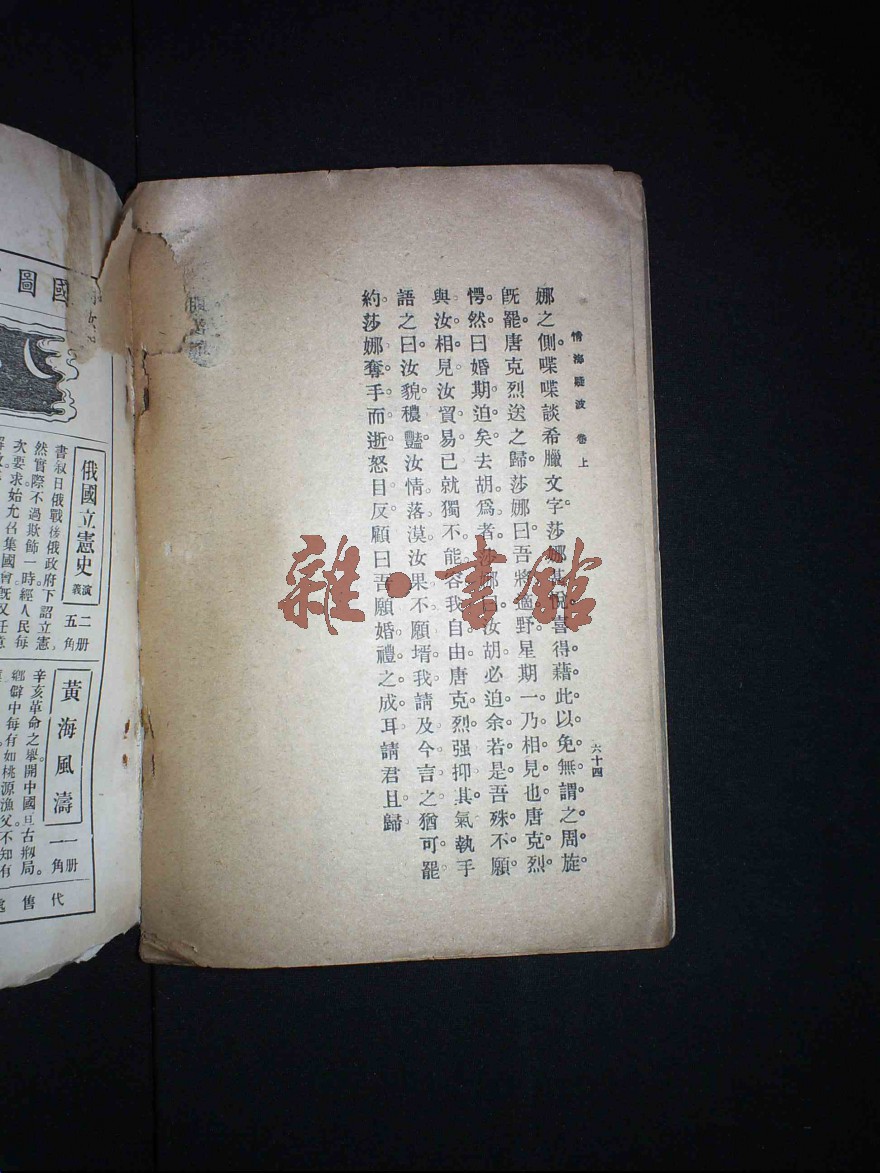 情海疑波 卷上
六十四
娜之側。喋喋談希臘文字。莎娜甚悅。喜得藉此以免無謂之周旋。
既罷。唐克烈送之歸。莎娜曰。吾將適野。星期一乃相見也。唐克烈
愕然曰。婚期迫矣。去胡爲者。莎娜曰。汝胡必迫余若是。吾殊不願
與汝相見。汝貿易已就。獨不能容我自由。唐克烈强抑其氣。執手
語之曰。汝貌穠豔。汝情落漠。汝果不願壻我。請及今言之猶可罷
約。莎娜奪手而逝。怒目反顧曰。吾願婚禮之成耳。請君且歸
國圖
俄國立憲史
演義
二册
五角
書叙日俄戰後俄政府下詔立憲
然實際不過欺飾一時經人民每
次要求始允召集國會既又任意
黃海風濤
一册
一角
辛亥革命之舉開中國亘古剏局。
鄉僻中每有如桃源漁父不知有
代售處
雜·書館